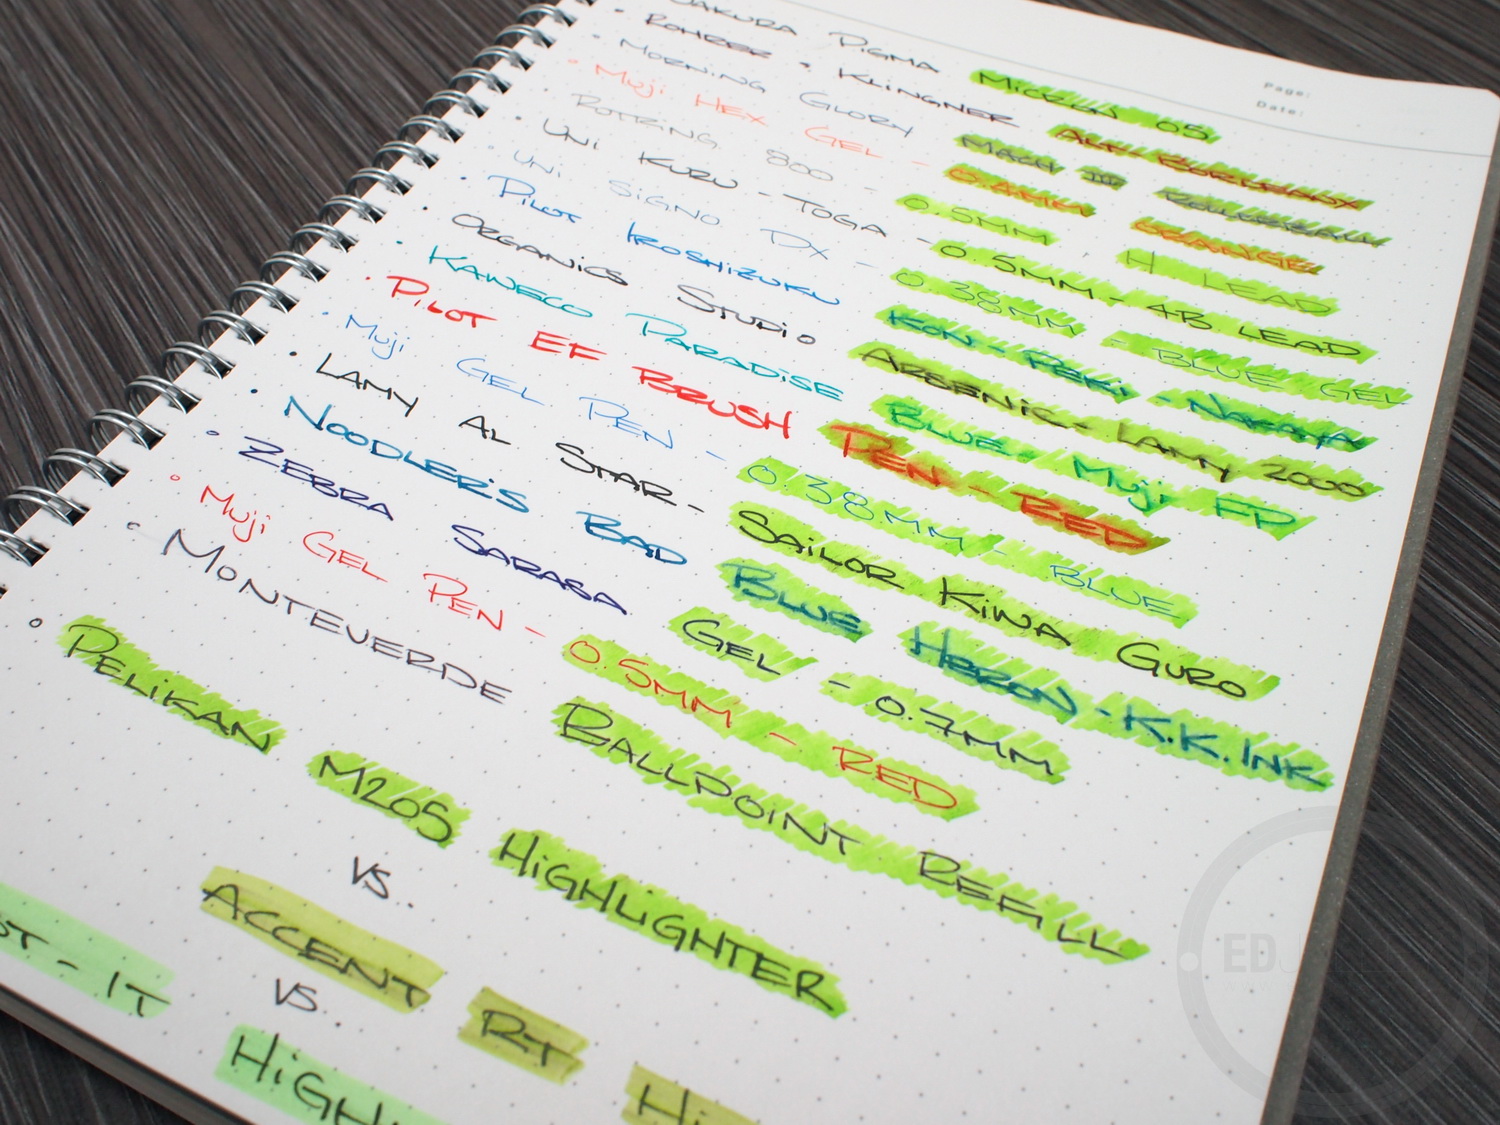 Page:
Date:
SAKURA PIGMA MICRON 05
• ROHRER + KLINGNER ALT-BORDEAUX
• MORNING GLORY MACH III ROLLERBALL
• Muji HEX GEL - 0.4MM ORANGE
• ROTRING 800 - 0.5MM, H LEAD
• UNi KURU-TOGA - 0.5MM - 4B LEAD
• UNi SiGNO DX - 0.38MM - BLUE GEL
• PiLOT IROSHiZUKU KON-PEKi - NAKAYA
• ORGANiCS STUDiO ARSENiC - LAMY 2000
• KAWECO PARADiSE BLUE - Muji FP
• PiLOT EF BRUSH PEN - RED
• Muji GEL PEN - 0.38MM - BLUE
• LAMY AL STAR - SAiLOR KiWA GURO
• NOODLER'S BAD BLUE HERON - K.K. INK
• ZEBRA SARASA GEL - 0.7MM
• Muji GEL PEN - 0.5MM - RED
• MONTEVERDE BALLPOiNT REFiLL
• PELiKAN M205 HiGHLiGHTER
VS..
ACCENT RT Hi
ST-IT
VS...
HiGH
ED